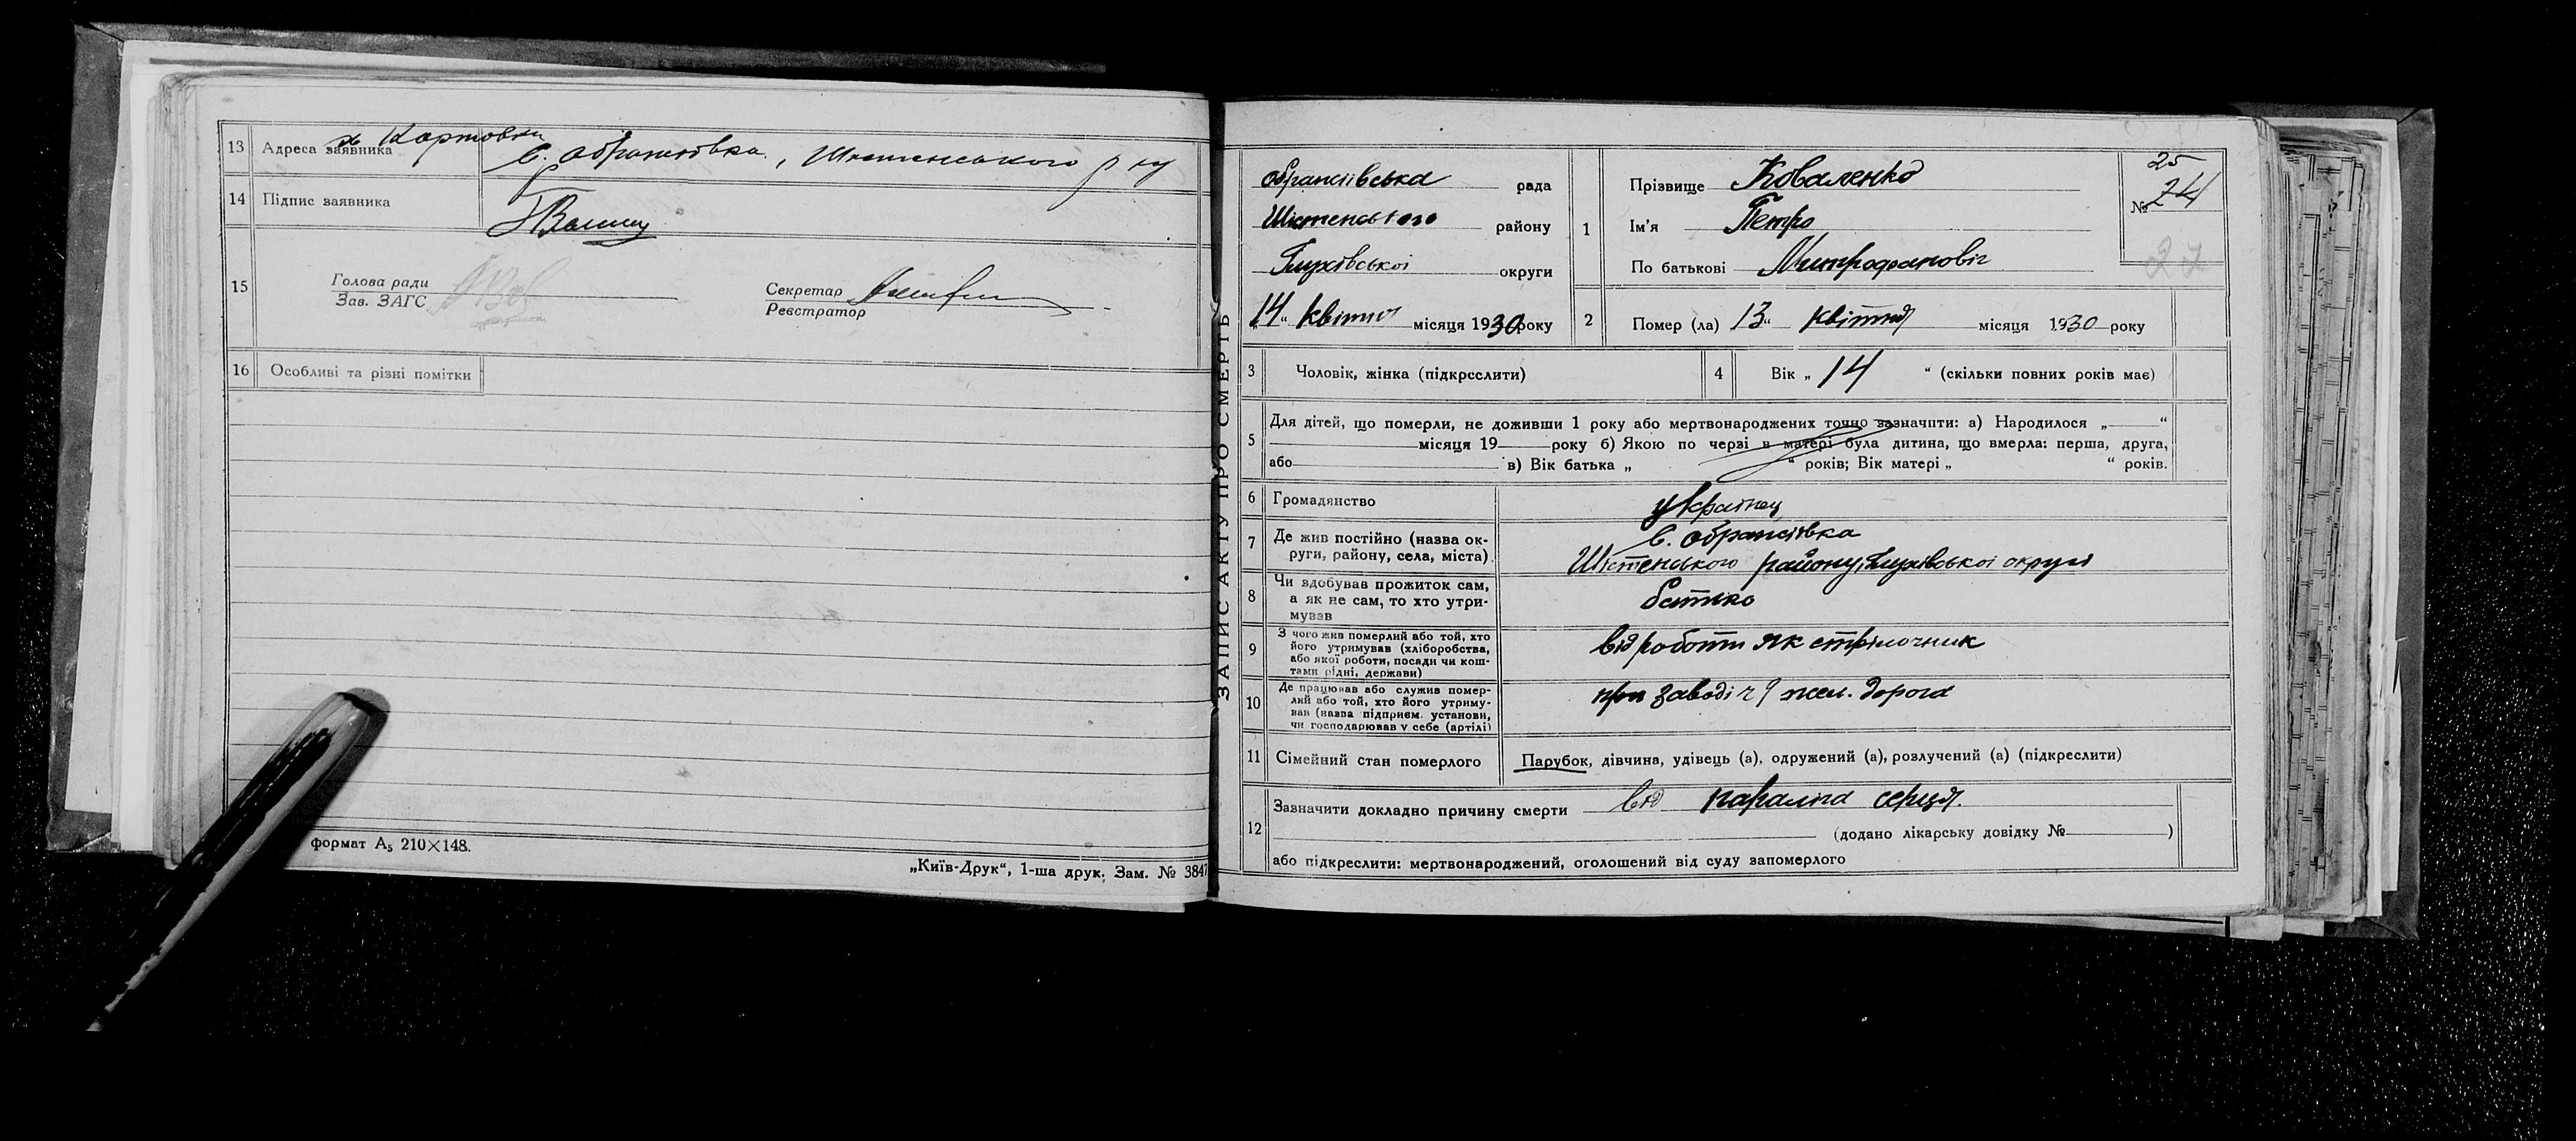 13 Адреса заявника х Картовки
С. Обратіївка, Шостенського р ну
14 Підпис заявника
15 Голова ради
Зав. ЗАГС
Секретар
Реєстратор
16 Особливі та різні помітки
формат А5 210×148.
„Київ-Друк“, 1-ша друк. Зам. № 3847
ЗАПИС АКТУ ПРО СМЕРТЬ
рада
Шостенського району
Глухівської округи
14 “ квітня місяця 1930 року
1 Прізвище Коваленко
Ім'я Петро
По батькові Митрофановіч
25
№ 24
27
2 Помер (ла) 13 “ квітня місяця 1930 року
3 Чоловік, жінка (підкреслити)
4 Вік „ 14 “ (скільки повних років має)
5 Для дітей, що померли, не доживши 1 року або мертвонароджених точно зазначити: а) Народилося „ “
місяця 19 року б) Якою по черзі в матері була дитина, що вмерла: перша, друга,
або в) Вік батька „ “ років; Вік матері „ “ років.
6 Громадянство українец
7 Де жив постійно (назва ок-
руги, району, села, міста)
Шостенського району, Глухівської округи
8 Чи здобував прожиток сам,
а як не сам, то хто утри-
мував
батько
9 З чого жив померлий або той, хто
його утримував (хліборобства,
або якої роботи, посади чи кош-
тами рідні, держави)
від роботи як стрілочник
10 Де працював або служив помер-
лий або той, хто його утриму-
вав (назва підприєм. установи,
чи господарював у себе (артілі)
при заводі ч 9 жел. дорога
11 Сімейний стан померлого Парубок, дівчина, удівець (а), одружений (а), розлучений (а) (підкреслити)
12 Зазначити докладно причину смерти від параліча серця.
(додано лікарську довідку № )
або підкреслити: мертвонароджений, оголошений від суду запомерлого